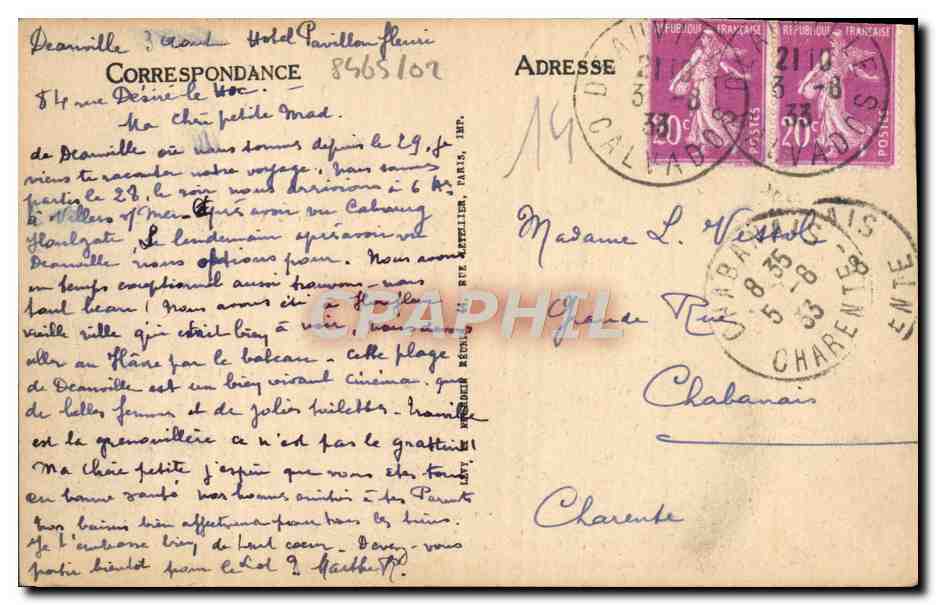 Deauville 3 Août Hotel Pavillon fleuri
8465/02
CORRESPONDANCE
84 rue Désiré le Hoc
Ma chère petite Mad.
de Deauville où nous sommes depuis le 29, je
viens te raconter notre voyage. Nous sommes
partis le 28, le soir nous arrivions à 6 hrs
à Villers s/Mer. Après avoir vu Cabourg
Houlgate, le lendemain après avoir vu
Deauville nous options pour. Nous avons
un temps exceptionnel aussi trouvons-nous
tout beau! Nous avons été à Honfleur
vieille ville qui était bien à voir, nous devons
aller au Hâvre par le bateau - Cette plage
de Deauville est un bien vivant cinéma, que
de belles femmes et de jolies toilettes - Trouville
est la grenouillère ce n'est pas le gratin!
Ma chère petite j'espère que vous êtes tous
en bonne santé nos bonnes amitiés à tes Parents
nos baisers bien affectueux pour tous les tiens.
Je t'embrasse bien de tout cœur - Devez-vous
partir bientôt pour le Lot ? Marthe
LÉVY ET NEURDEIN RÉUNIS, RUE LETELLIER, PARIS, IMP.
ADRESSE
14
Madame L.
Grande Rue
Chabanais
Charente
RÉPUBLIQUE FRANÇAISE
20c
POSTES
RÉPUBLIQUE FRANÇAISE
20c
POSTES
DEAUVILLE
21 10
3 -8
33
CALVADOS
21 10
3 -8
33
CALVADOS
CHABANAIS
8 35
5 -8
33
CHARENTE
CPARHIL